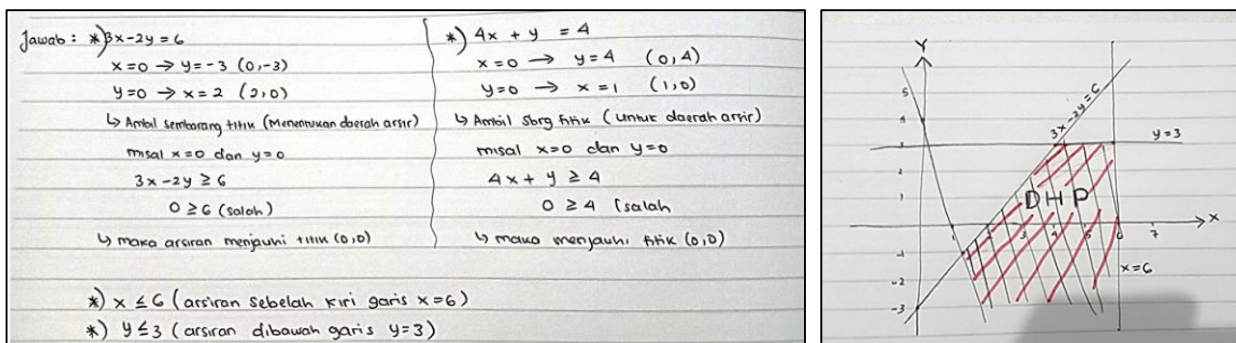 Jawab : *) 3x-2y = 6
x=0 → y=-3 (0,-3)
y=0 → x=2 (2,0)
↳ Ambil sembarang titik (Menentukan daerah arsir)
misal x=0 dan y=0
3x-2y ≥ 6
0 ≥ 6 (salah)
↳ maka arsiran menjauhi titik (0,0)
*) 4x + y = 4
x=0 → y=4 (0,4)
y=0 → x=1 (1,0)
↳ Ambil sbrg titik (untuk daerah arsir)
misal x=0 dan y=0
4x + y ≥ 4
0 ≥ 4 (salah
↳ maka menjauhi titik (0,0)
*) x ≤ 6 (arsiran sebelah kiri garis x=6)
*) y ≤ 3 (arsiran dibawah garis y=3)
Y
5
4
3
2
1
3x-2y=6
y=3
DHP
X
1
3
4
5
6
7
-1
-2
-3
x=6